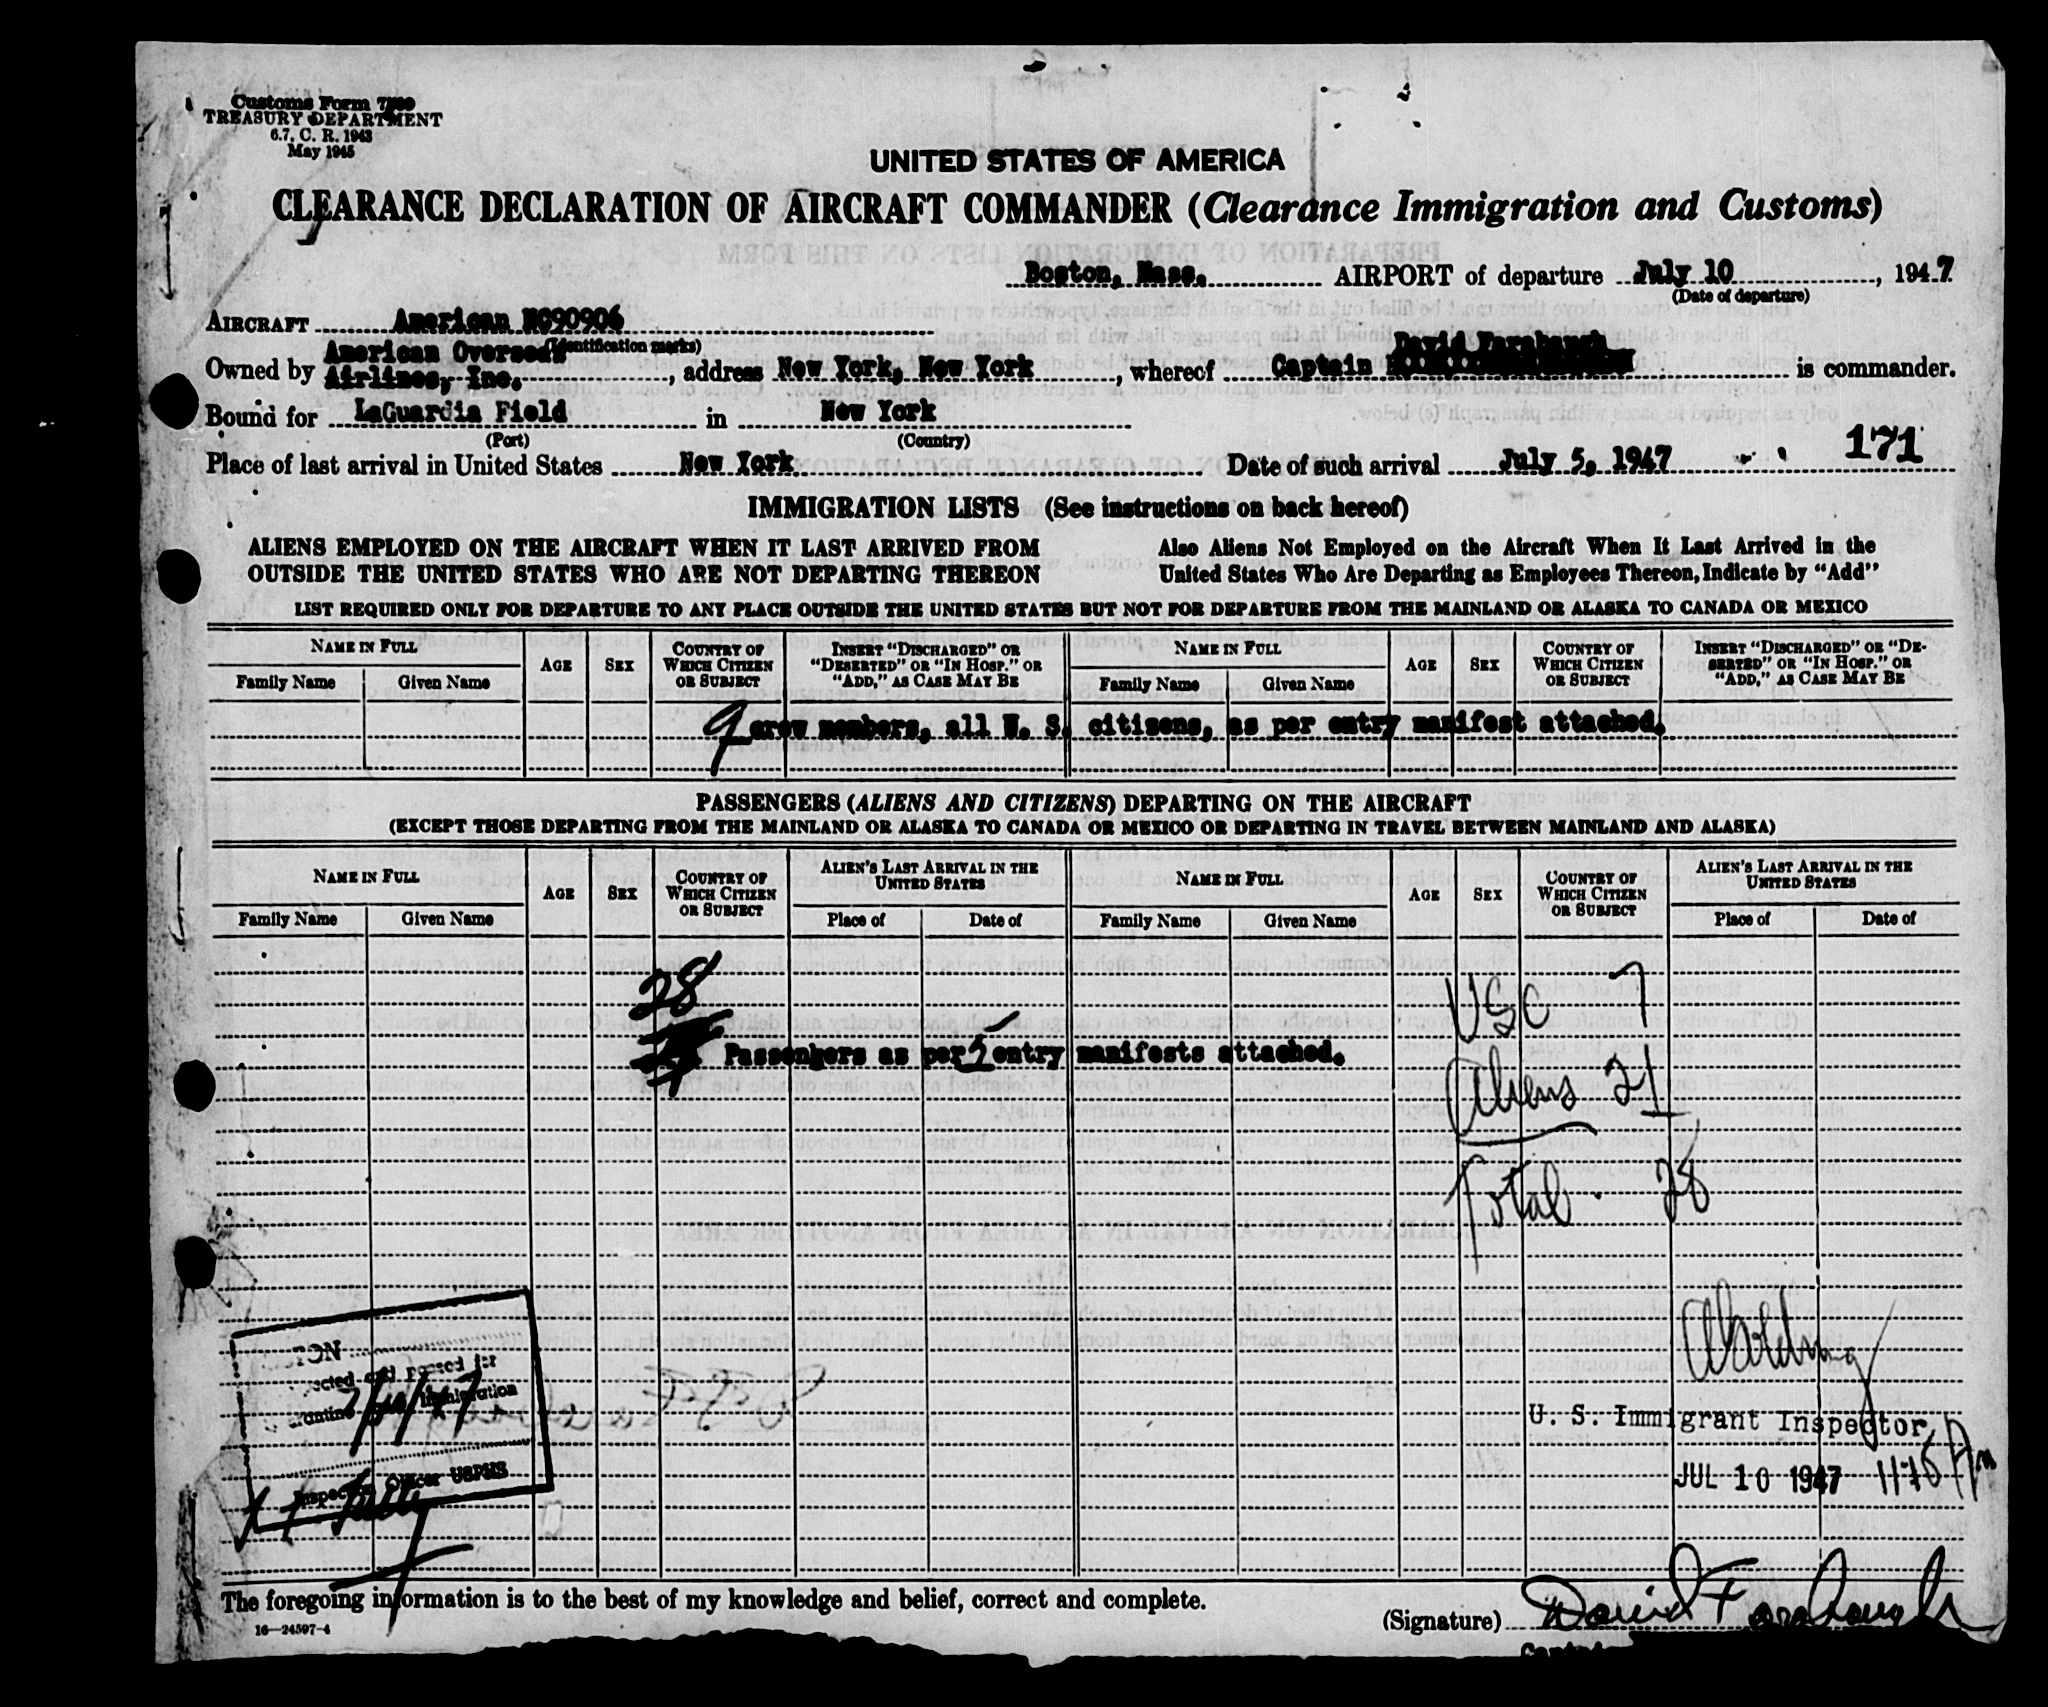 Customs Form
TREASURY DEPARTMENT
6.7, C. R. 1943
May 1945
UNITED STATES OF AMERICA
CLEARANCE DECLARATION OF AIRCRAFT COMMANDER (Clearance Immigration and Customs)
Boston, Mass. AIRPORT of departure July 10, 1947
(Date of departure)
AIRCRAFT American NC90906
(Identification marks)
David Farabaugh
Owned by American Overseas Airlines, Inc., address New York, New York, whereof Captain is commander.
Bound for LaGuardia Field in New York
(Port) (Country)
171
Place of last arrival in United States New York Date of such arrival July 5, 1947
IMMIGRATION LISTS (See instructions on back hereof)
ALIENS EMPLOYED ON THE AIRCRAFT WHEN IT LAST ARRIVED FROM
OUTSIDE THE UNITED STATES WHO ARE NOT DEPARTING THEREON
Also Aliens Not Employed on the Aircraft When It Last Arrived in the
United States Who Are Departing as Employees Thereon, Indicate by "Add"
LIST REQUIRED ONLY FOR DEPARTURE TO ANY PLACE OUTSIDE THE UNITED STATES BUT NOT FOR DEPARTURE FROM THE MAINLAND OR ALASKA TO CANADA OR MEXICO
NAME IN FULL
Family Name Given Name
AGE
SEX
COUNTRY OF
WHICH CITIZEN
OR SUBJECT
INSERT "DISCHARGED" OR
"DESERTED" OR "IN HOSP." OR
"ADD," AS CASE MAY BE
NAME IN FULL
Family Name Given Name
AGE
SEX
COUNTRY OF
WHICH CITIZEN
OR SUBJECT
INSERT "DISCHARGED" OR "DE-
SERTED" OR "IN HOSP." OR
"ADD," AS CASE MAY BE
9 crew members, all U. S. citizens, as per entry manifest attached.
PASSENGERS (ALIENS AND CITIZENS) DEPARTING ON THE AIRCRAFT
(EXCEPT THOSE DEPARTING FROM THE MAINLAND OR ALASKA TO CANADA OR MEXICO OR DEPARTING IN TRAVEL BETWEEN MAINLAND AND ALASKA)
NAME IN FULL
Family Name Given Name
AGE
SEX
COUNTRY OF
WHICH CITIZEN
OR SUBJECT
ALIEN'S LAST ARRIVAL IN THE
UNITED STATES
Place of Date of
NAME IN FULL
Family Name Given Name
AGE
SEX
COUNTRY OF
WHICH CITIZEN
OR SUBJECT
ALIEN'S LAST ARRIVAL IN THE
UNITED STATES
Place of Date of
28
USC 7
Passengers as per 5 entry manifests attached.
Aliens 21
Total 28
U. S. Immigrant Inspector
JUL 10 1947
7/10/47
Immigration
Officer USPHS
The foregoing information is to the best of my knowledge and belief, correct and complete.
16—24597-4
(Signature) David F Farabaugh